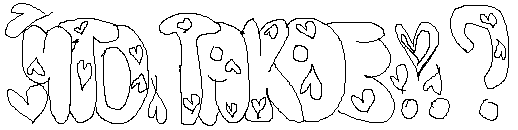 ЧТО, ТАКОЕ!!?